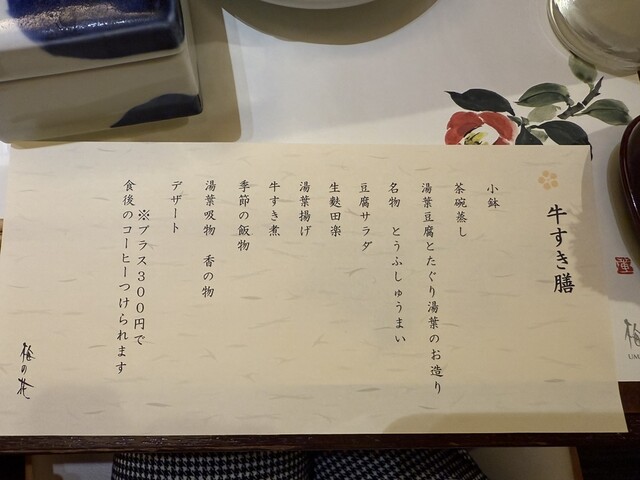 牛すき膳
小鉢
茶碗蒸し
湯葉豆腐とたぐり湯葉のお造り
名物 とうふしゅうまい
豆腐サラダ
生麩田楽
湯葉揚げ
牛すき煮
季節の飯物
湯葉吸物 香の物
デザート
※プラス300円で
食後のコーヒーつけられます
梅の花
梅
UM